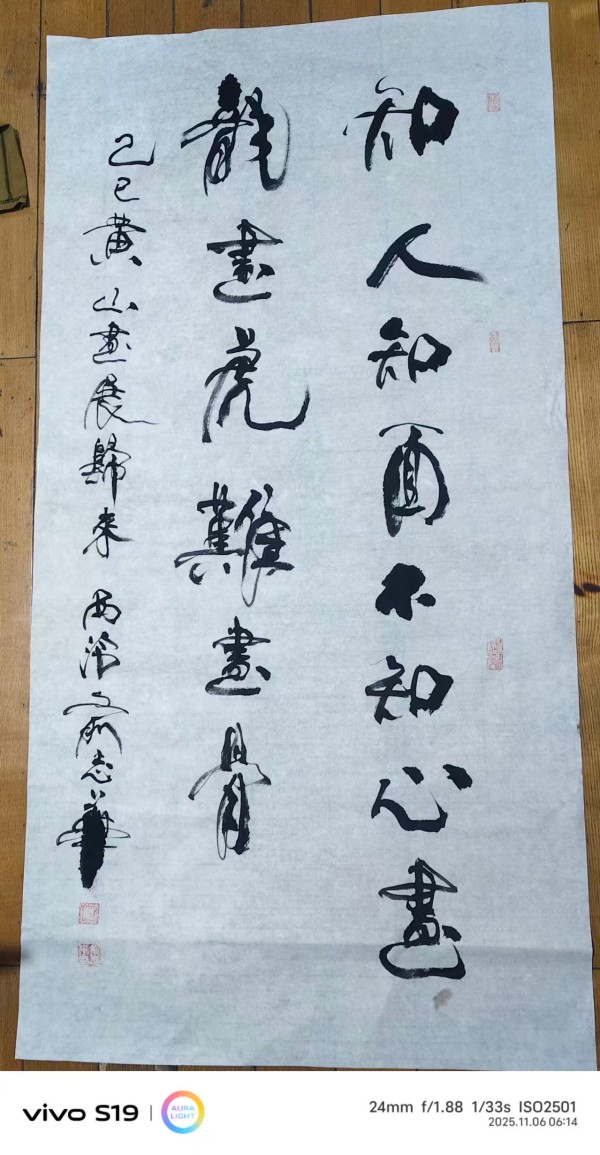 知人知面不知心畫
龍畫虎難畫骨
己巳黃山畫展歸來 西泠 俞志華
vivo S19 | AURA LIGHT
24mm f/1.88 1/33s ISO2501
2025.11.06 06:14